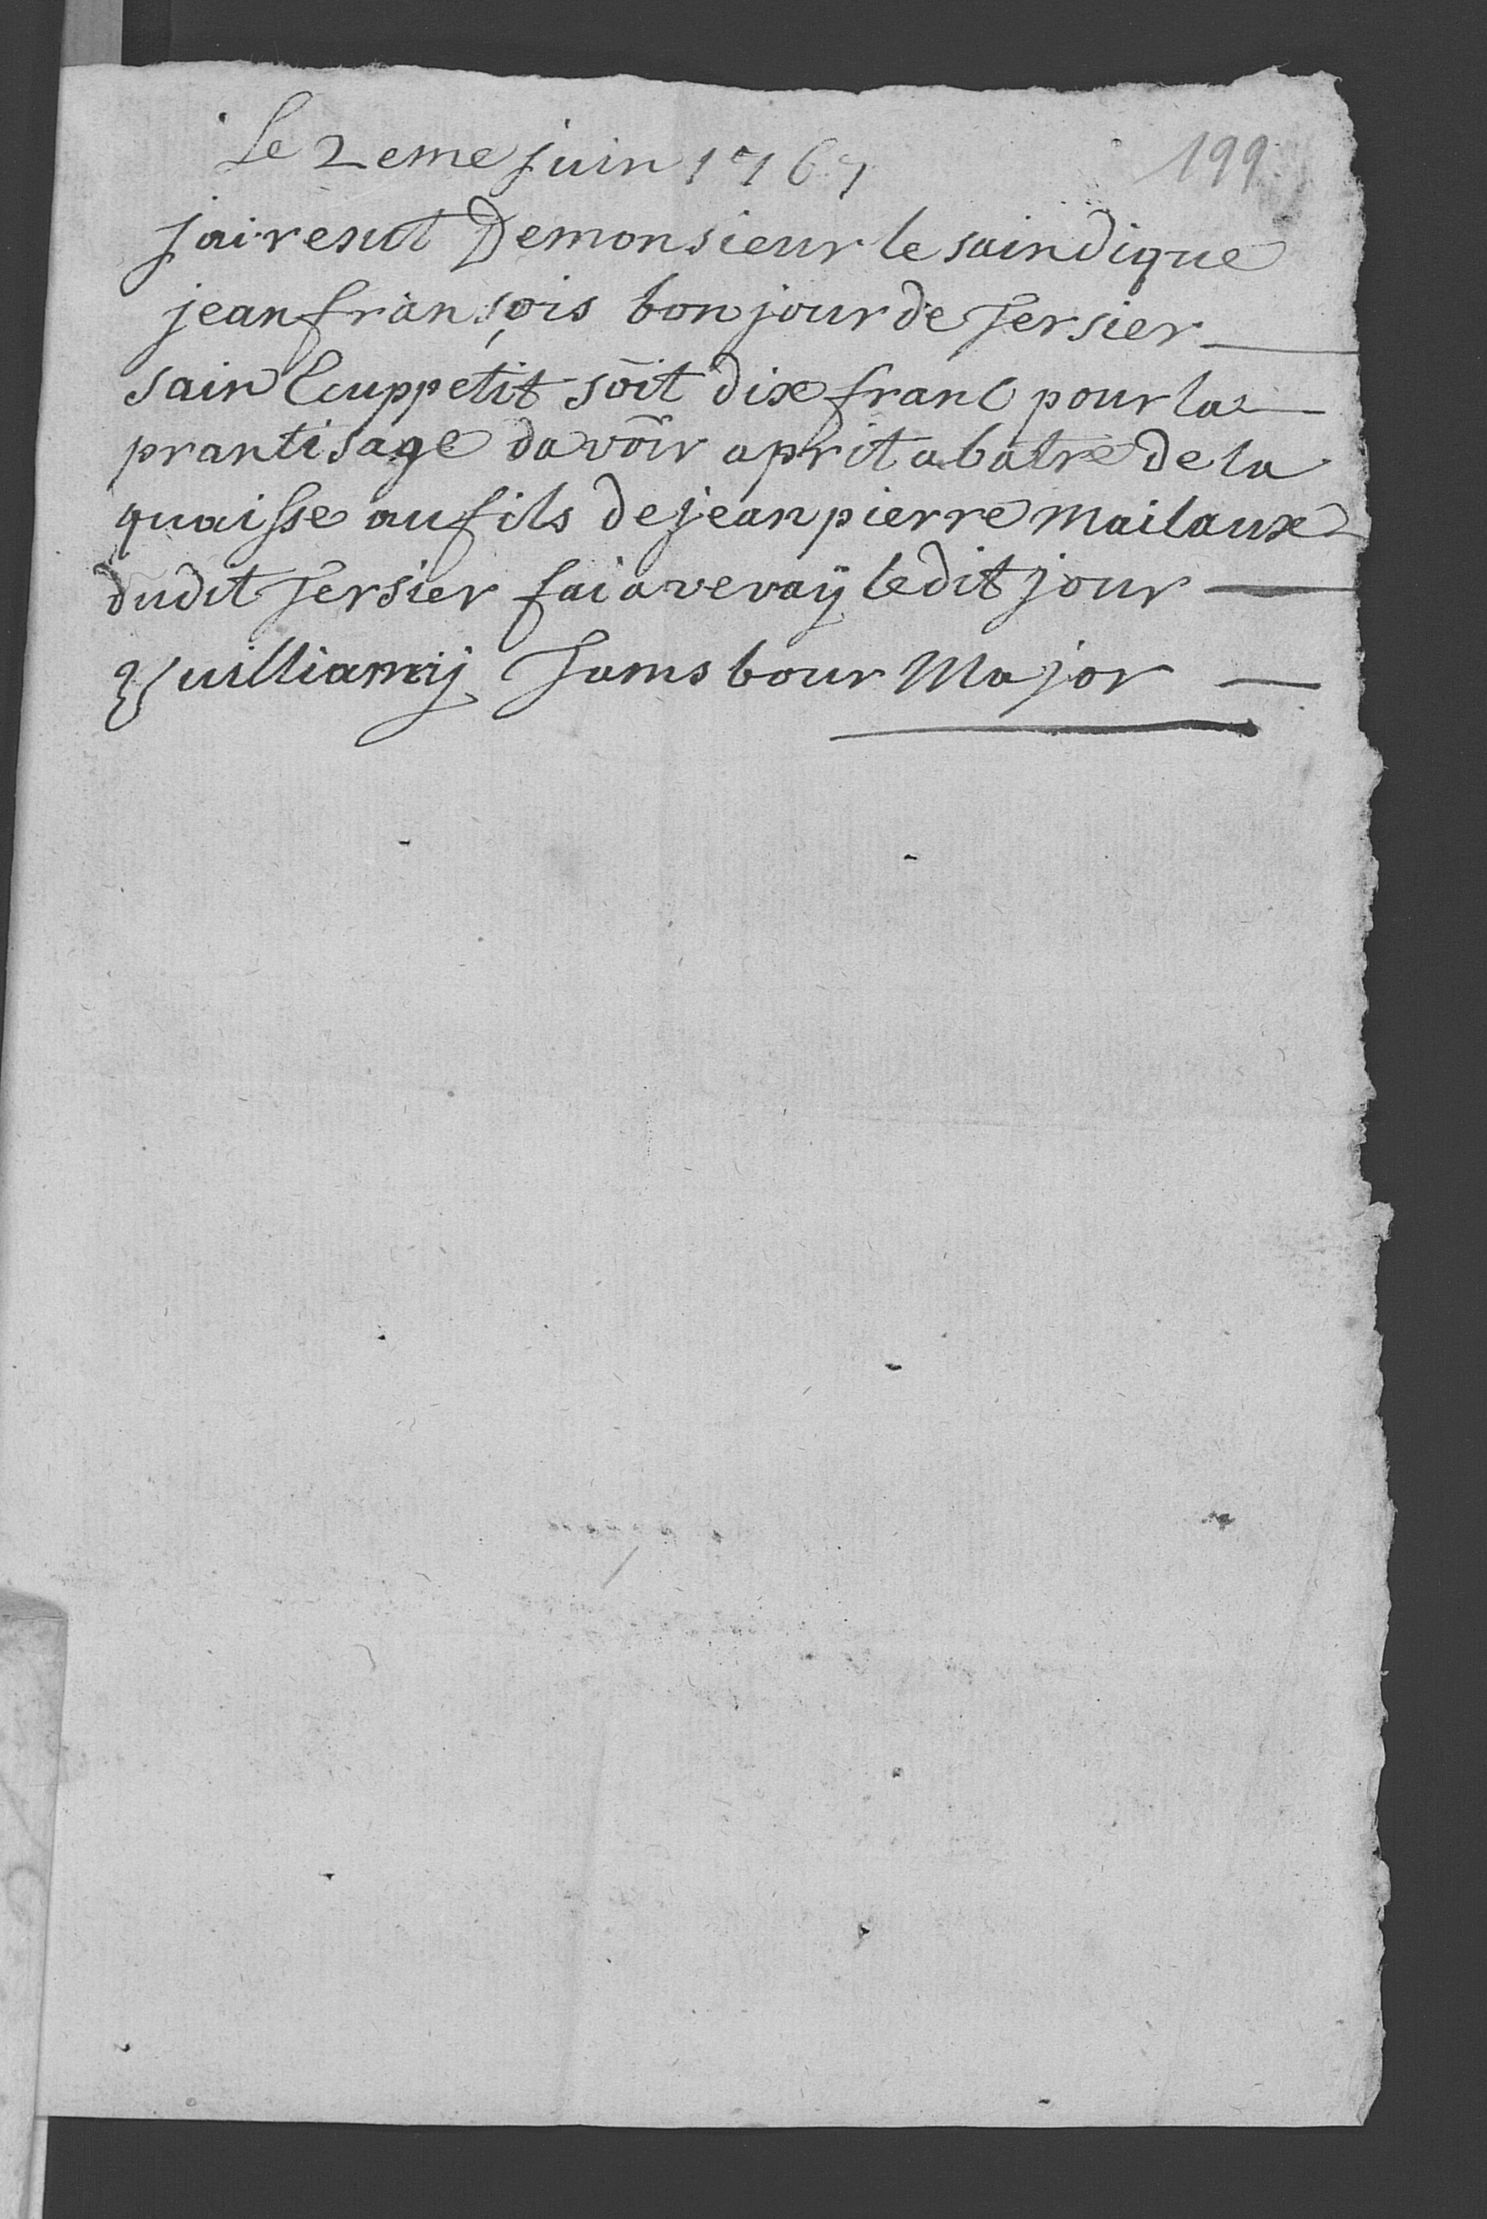 Le 2eme juin 1767
199
jai resut De monsieur le saindique
jean fransçois bonjour de Jersier
sain Ecuppetit soit dix franc pour la
prantisage davoir aprit a batre de la
quaisse au fils de jean pierre Mailaux
dudit Jersier fai a vevaÿ ledit jour
Vuilliamij Tamsbour Major